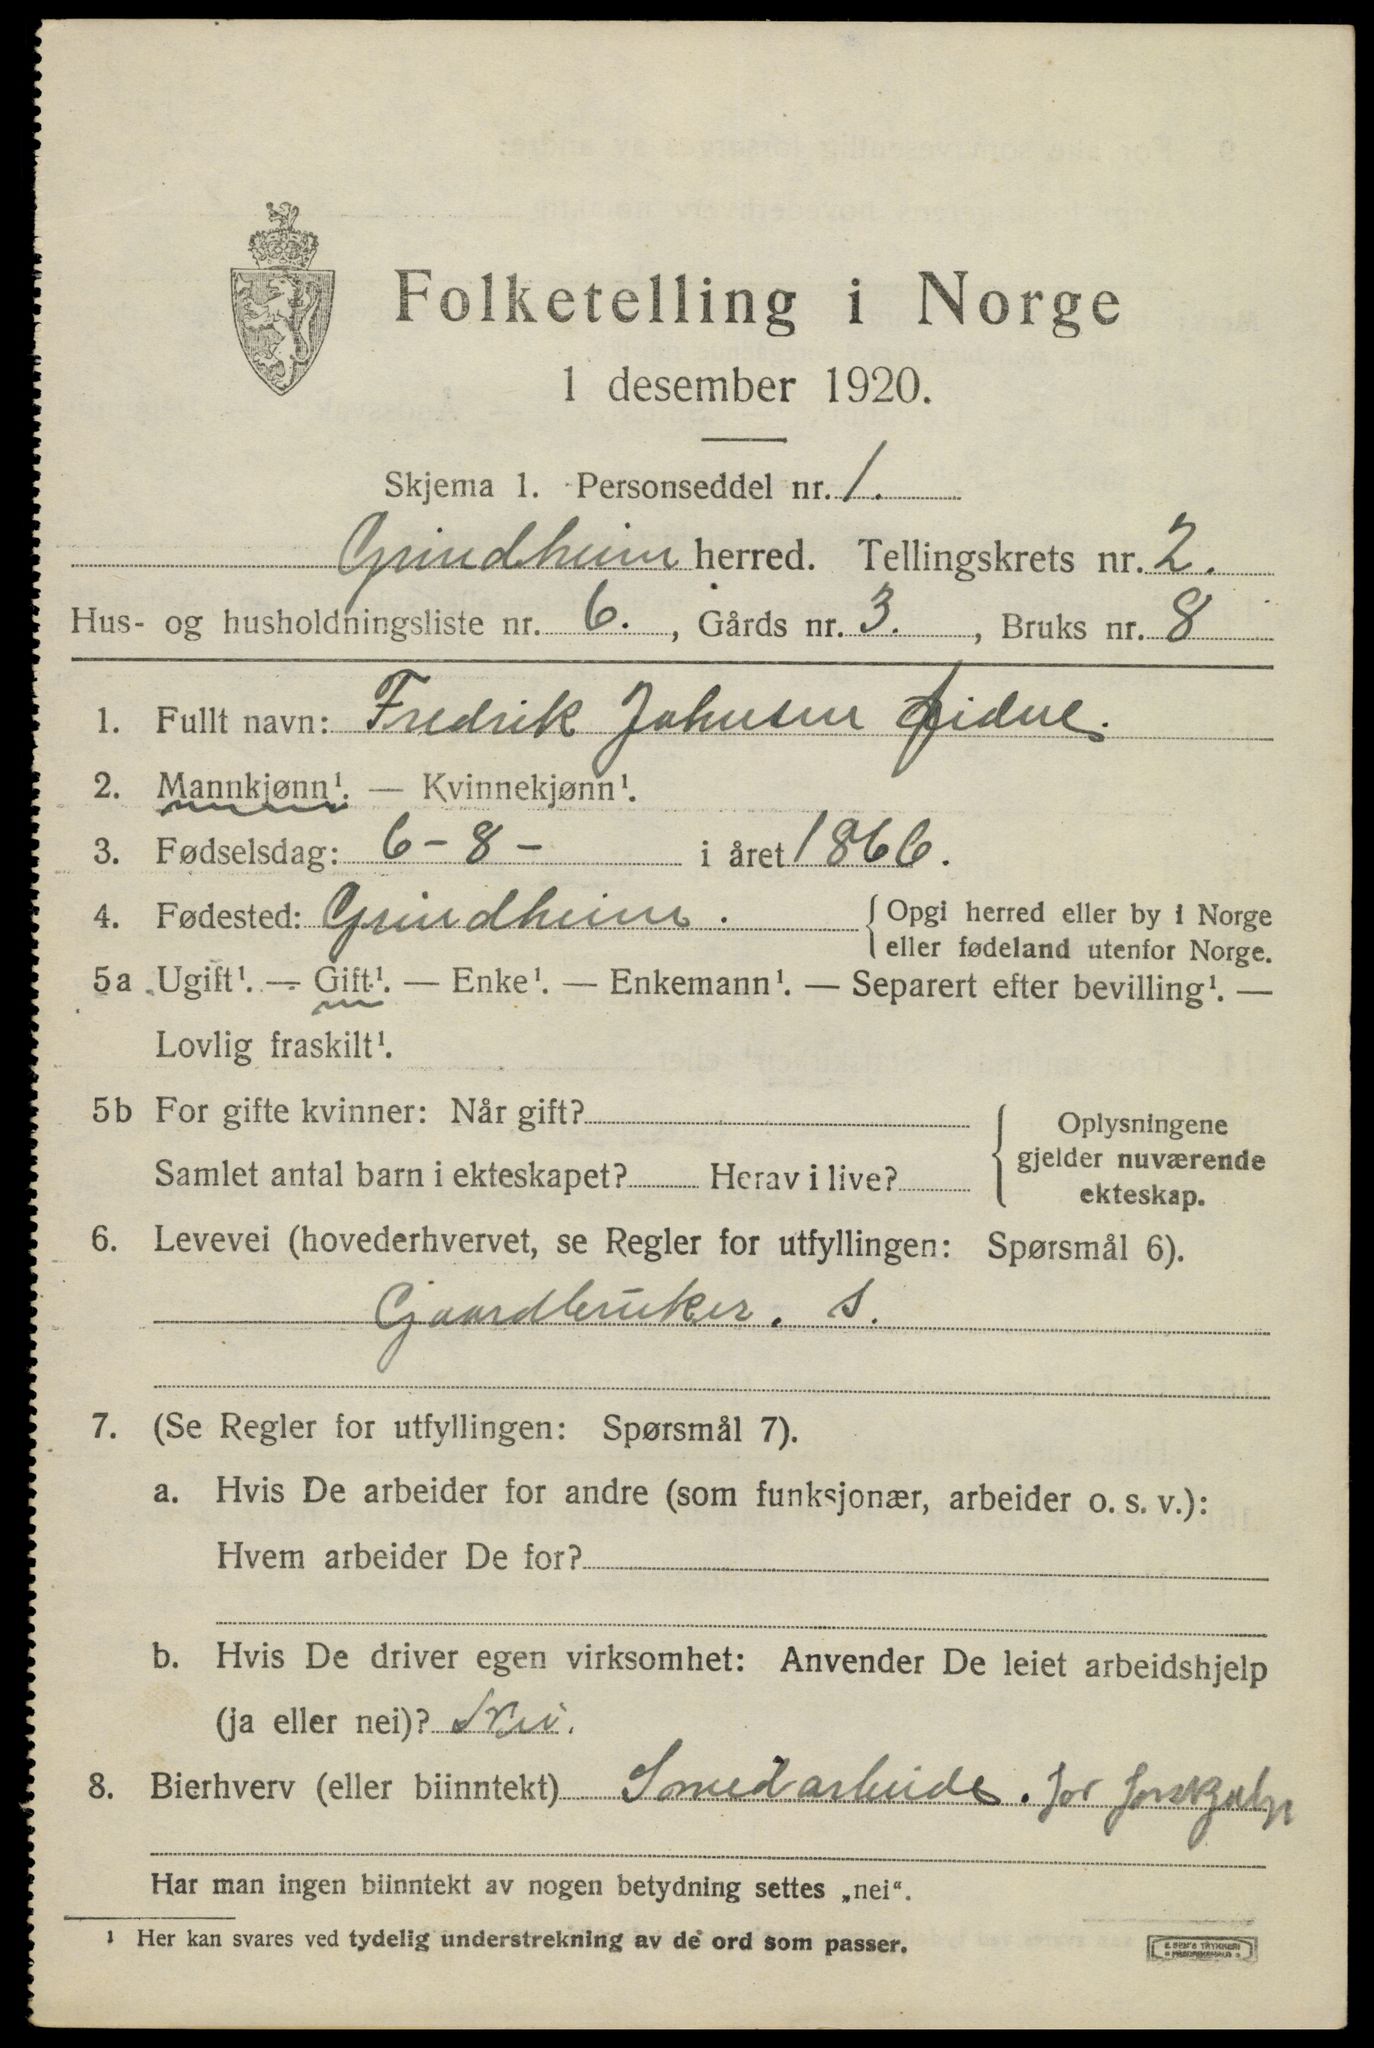 Folketelling i Norge
1 desember 1920.
Skjema 1. Personseddel nr. 1.
Grindheim herred. Tellingskrets nr. 2.
Hus- og husholdningsliste nr. 6. , Gårds nr. 3. , Bruks nr. 8
1. Fullt navn: Fredrik Johnsen Øidne.
2. Mannkjønn¹. — Kvinnekjønn¹.
3. Fødselsdag: 6-8- i året 1866.
4. Fødested: Grindheim. { Opgi herred eller by i Norge
eller fødeland utenfor Norge.
5a Ugift¹. — Gift¹. — Enke¹. — Enkemann¹. — Separert efter bevilling¹. —
Lovlig fraskilt¹.
5b For gifte kvinner: Når gift?
Samlet antal barn i ekteskapet? Herav i live?
{ Oplysningene
gjelder nuværende
ekteskap.
6. Levevei (hovederhvervet, se Regler for utfyllingen: Spørsmål 6).
Gaardbruker. S.
7. (Se Regler for utfyllingen: Spørsmål 7).
a. Hvis De arbeider for andre (som funksjonær, arbeider o. s. v.):
Hvem arbeider De for?
b. Hvis De driver egen virksomhet: Anvender De leiet arbeidshjelp
(ja eller nei)? Nei.
8. Bierhverv (eller biinntekt) Smedarbeide. for
Har man ingen biinntekt av nogen betydning settes „nei“.
1 Her kan svares ved tydelig understrekning av de ord som passer.